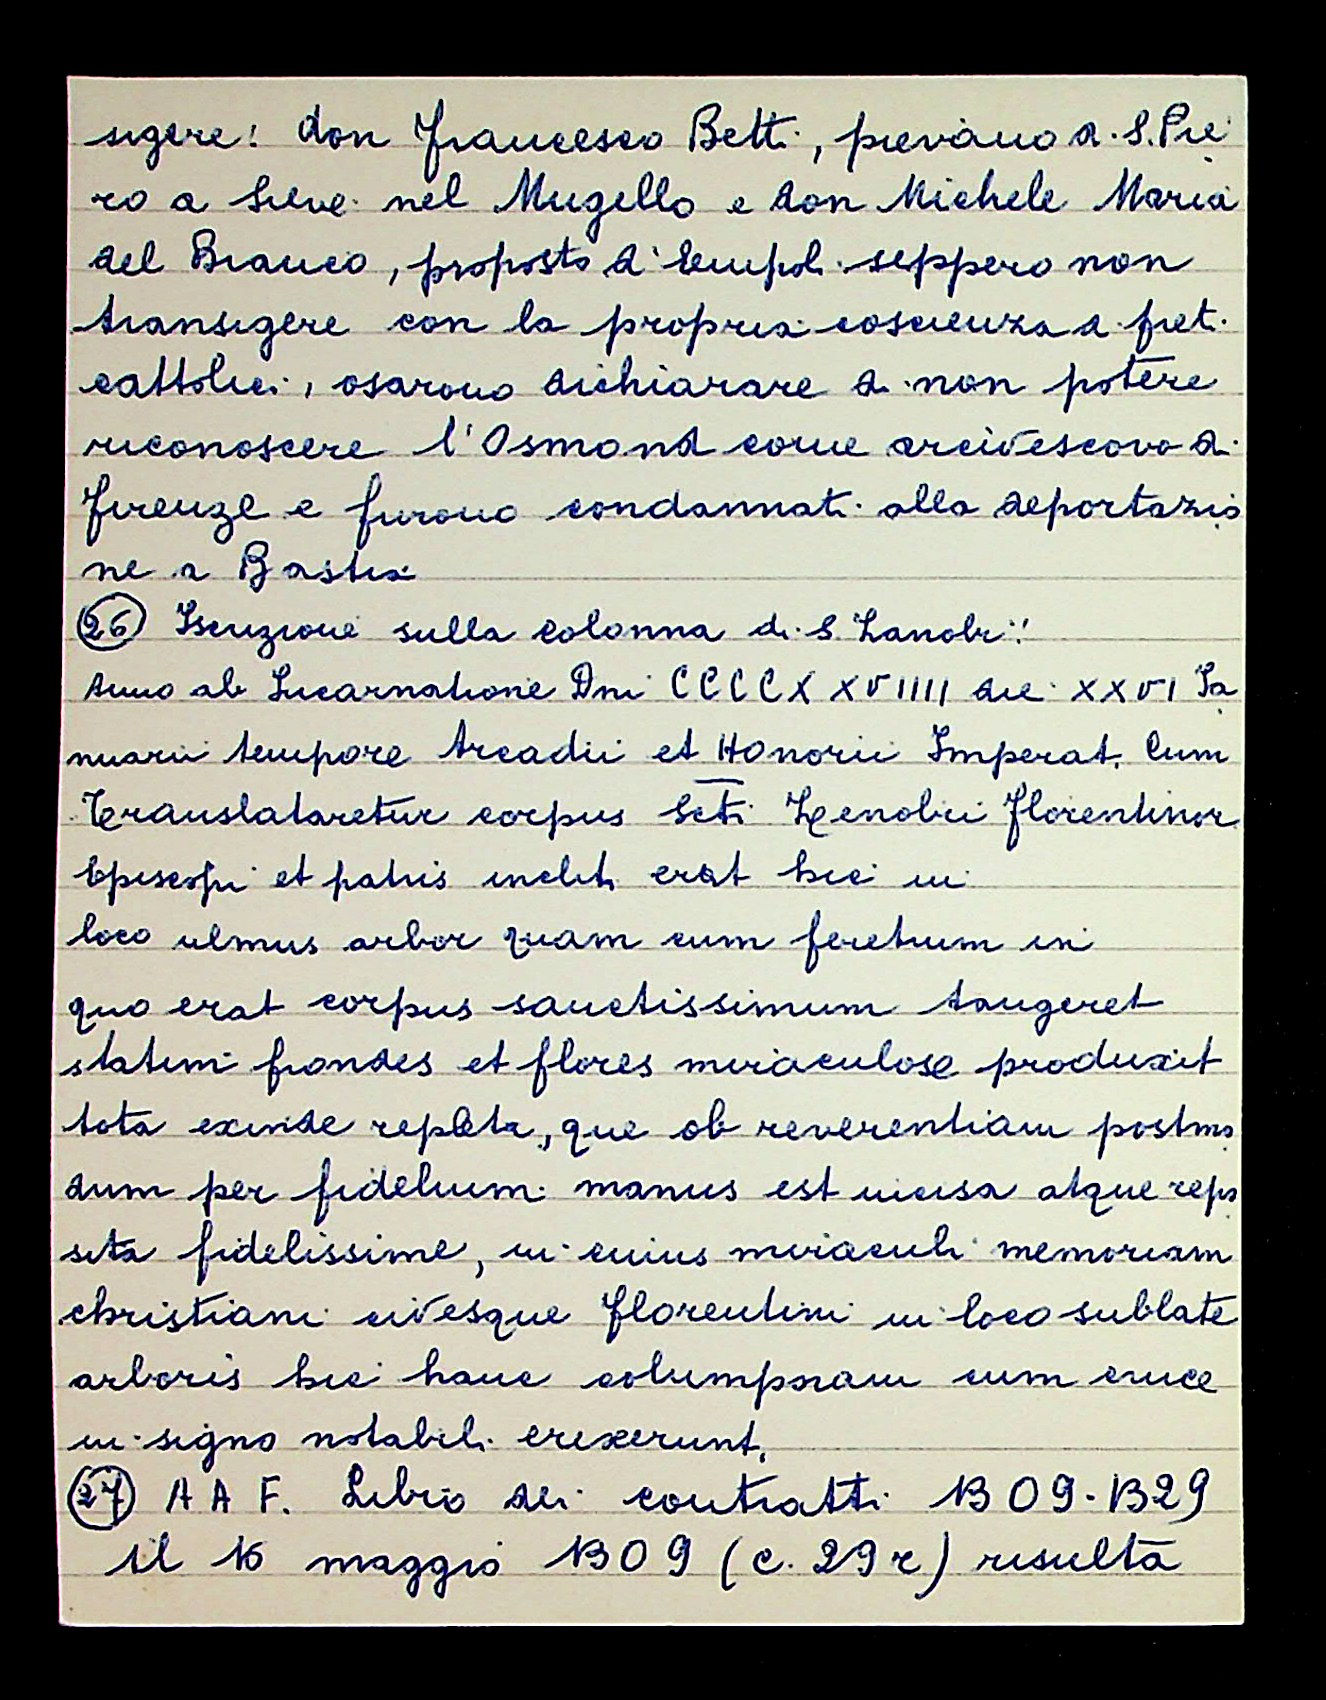 sigere: don Francesco Betti, pievano di S. Pie
ro a Sieve nel Mugello e don Michele Maria
del Bianco, proposto d'Empoli seppero non
transigere con la propria coscienza di preti
cattolici, osarono dichiarare di non potere
riconoscere l'Osmond come arcivescovo di
Firenze e furono condannati alla deportazio
ne a Bastia
26 Iscrizione sulla colonna di S. Zanobi:
Anno ab Incarnatione Dni CCCCXXVIIII die XXVI Ja
nuarii tempore Arcadii et Honorii Imperat. Cum
Translataretur corpus Scti Zenobii Florentinor
Episcopi et patris incliti erat hic in
loco ulmus arbor quam cum feretrum in
quo erat corpus sanctissimum tangeret
statim frondes et flores miraculose produxit
tota exinde repleta, que ob reverentiam postmo
dum per fidelium manus est incisa atque repo
sita fidelissime, in cuius miraculi memoriam
christiani civesque Florentini in loco sublate
arboris hic hanc columpnam cum cruce
in signo notabili erexerunt.
27 A A F. Libro dei contratti 1309-1329
il 16 maggio 1309 (c. 29 r) risulta